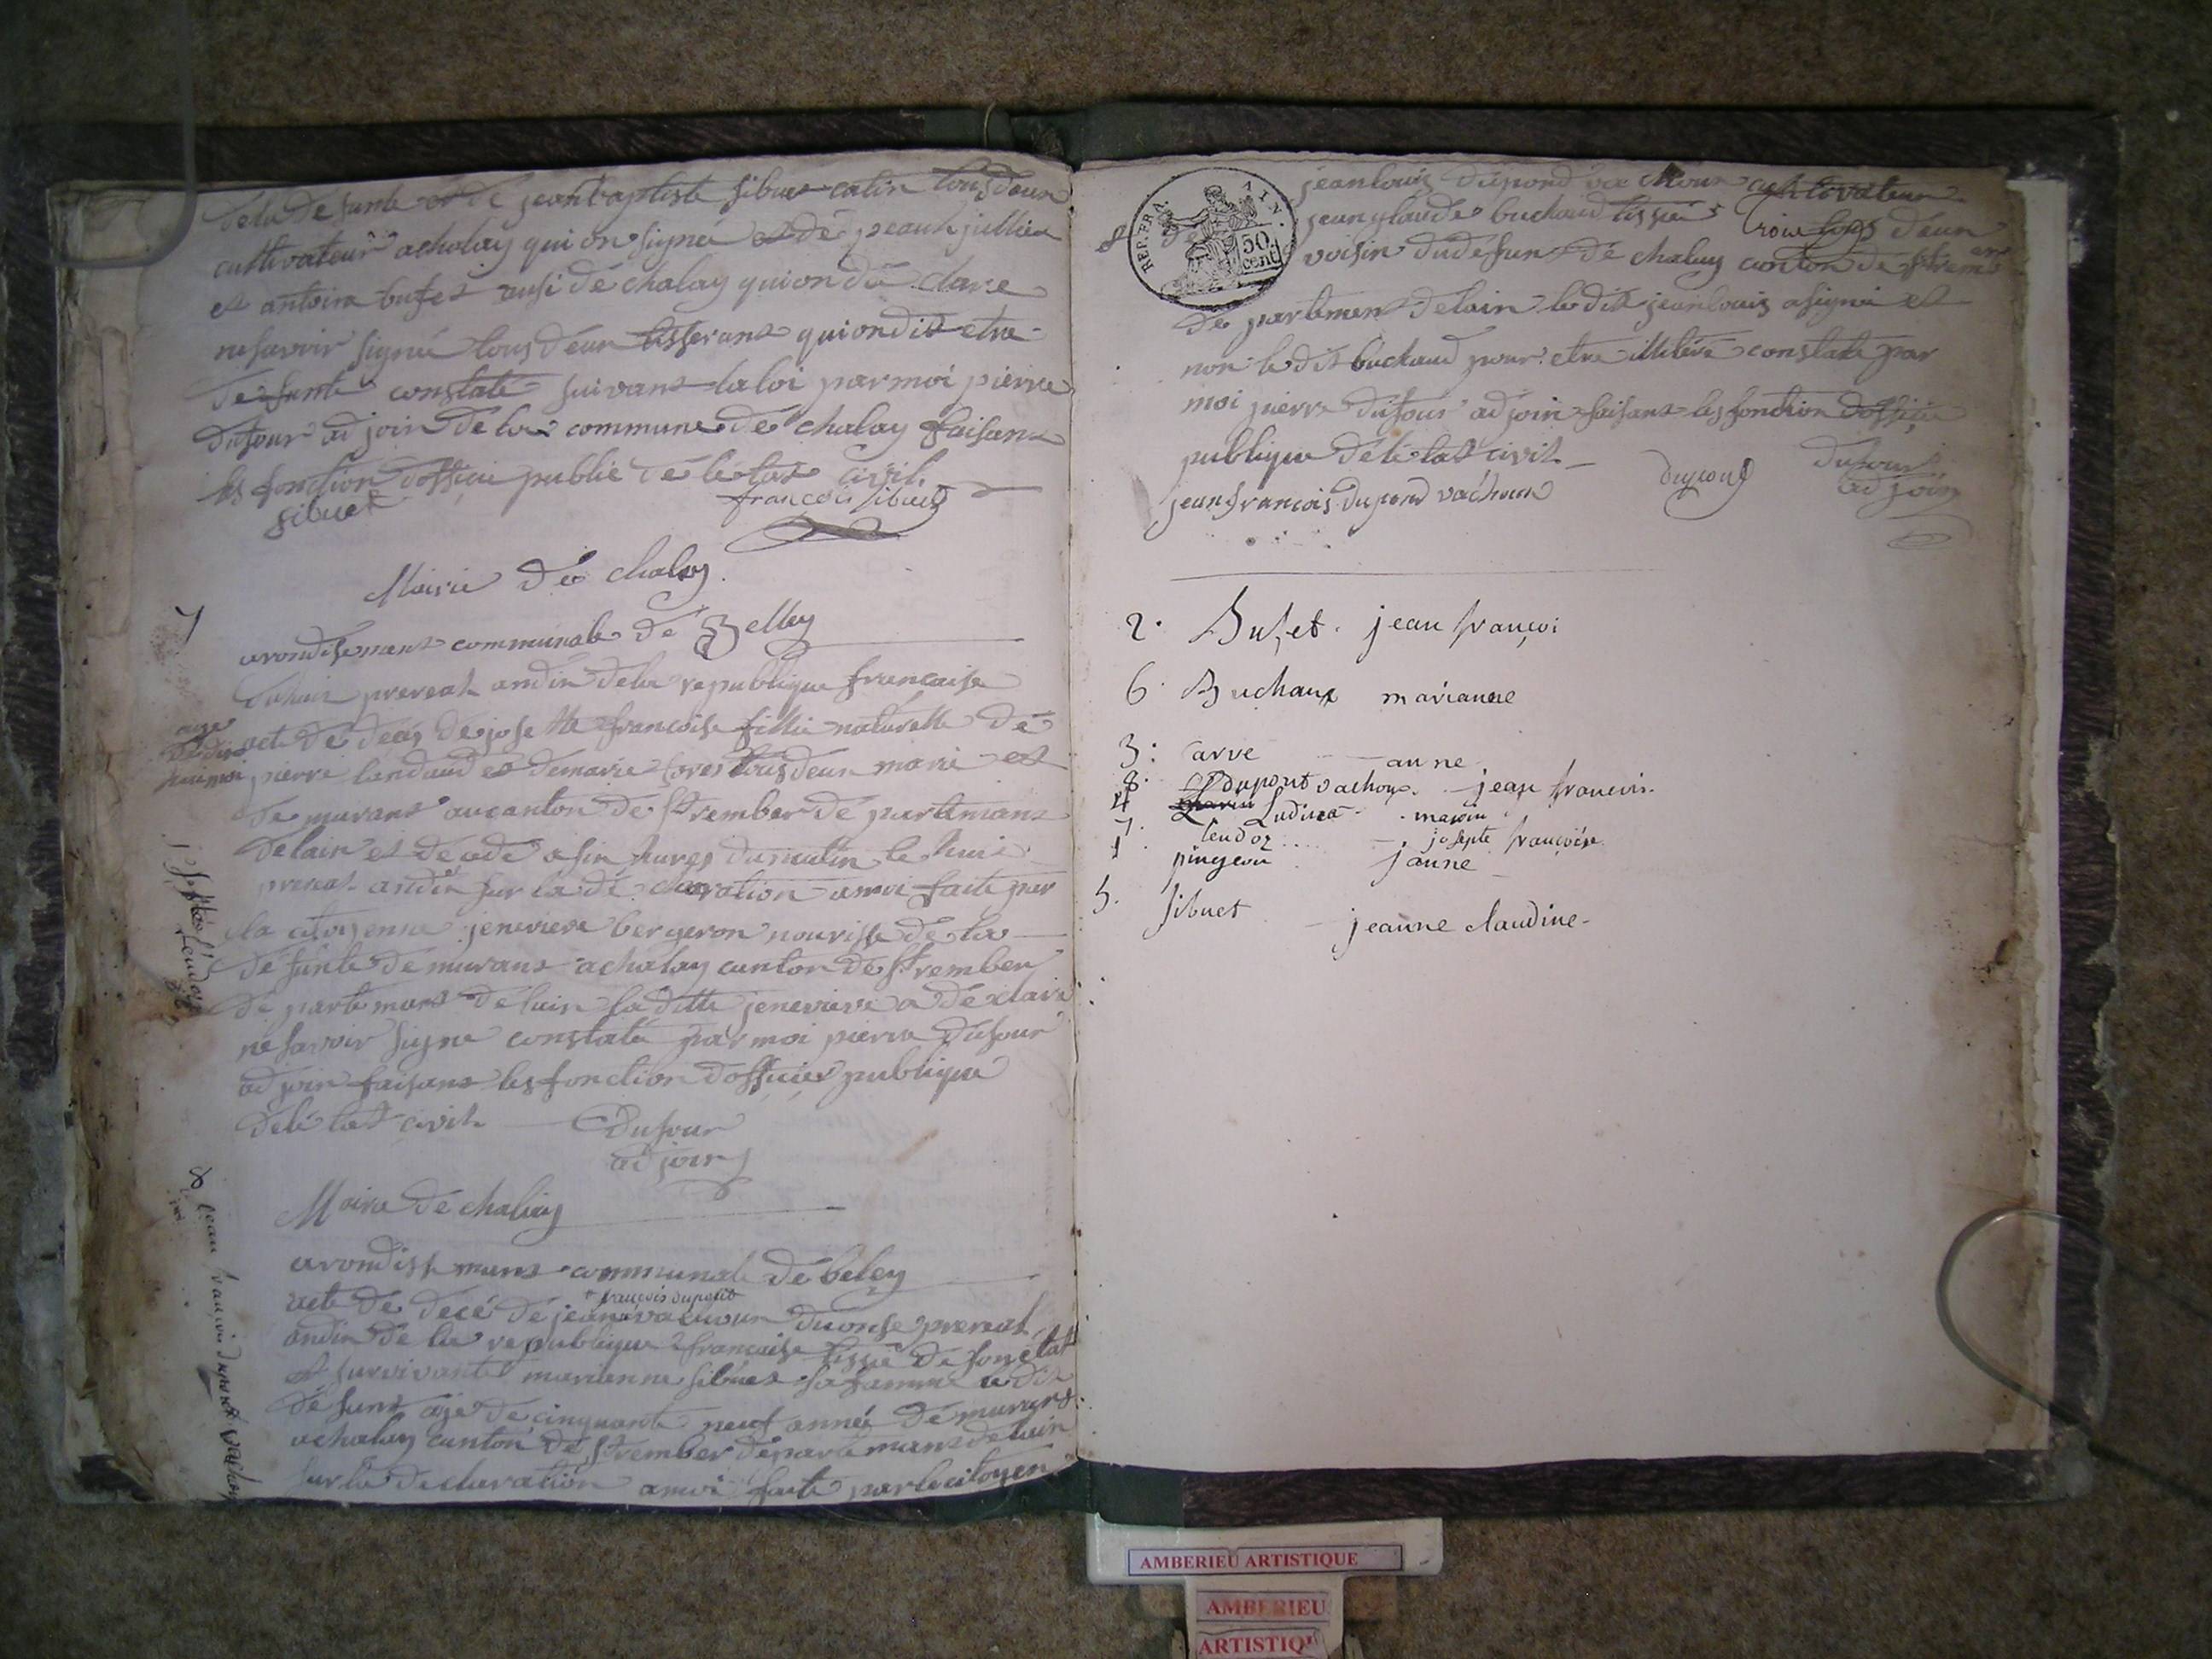 dela defunte et dé jeanbaptiste sibuet catin tous deux
cultivateur achaley qui on signé et dé jullien
et antoine bufet ausi dé chaley qui on dé clare
ne savoir signé tous deux tisserant qui on dit etre
defunte constaté suivant la loi par moi pierre
dufour ad join de la commune dé chaley faisant
les fonction doffiçié publie dé le tat civil
sibuet françois sibuet
Mairie dé chaley
7
arondisemant communale dé Belley
du huit prereal an dix dela republique francaise
age de dix
acte dé deces dé josette françoise fillie naturelle dé
pierre landaud et demarie tous deux marié et
demurant au canton dé st rember dé partemant
delain et decedé a sin hures du matin le huit
prereal an dix sur la dé claration a moi faite par
la citoyenne jenevieve bergeron nourisse dé la
défunte demurant achaley canton dé st rember
dé partemant délain la ditte jenevieve a dé claré
né savoir signe constaté par moi pierre dufour
ad join faisant les fonction dofficier publique
délé tat civil dufour
ad join
8 jean françoi dupont vachou
Mairie dé chaley
arondissemant communale dé beley
françois dupont
acte dé décé dé jean vachoux du onse prereal
an dix dé la republique française tissié de son état
et survivante marienne sibuet sa famme le dit
défunt age dé cinquante neuf année demurant
achaley canton dé st rember departemant delain
sur la declaration a moi faite par le citoyen
REP. FRA. AIN.
50 cent
8
jeanlouis dupond vachoux cultivateur
jean glaude buchaud tissié tous deux
voisin du défunt dé chaley canton de st rembert
dé partement delain le dit jeanlouis a signé et
non le dit buchaud pour etre illiteré constaté par
moi pierre dufour ad join faisant les fonction doffiçié
publique délé tat civil
dupond dufour
jean françois dupond vachoux ad join
2. Bufet. jean françoi
6. Buchaux marianne
3. Carve anne
8. dupont vachoux. jean francois.
4 Ludivet marin
7. lendoz josepte françoise
1 pingeon janne
5. sibuet jeanne claudine
AMBERIEU ARTISTIQUE
AMBERIEU
ARTISTIQU